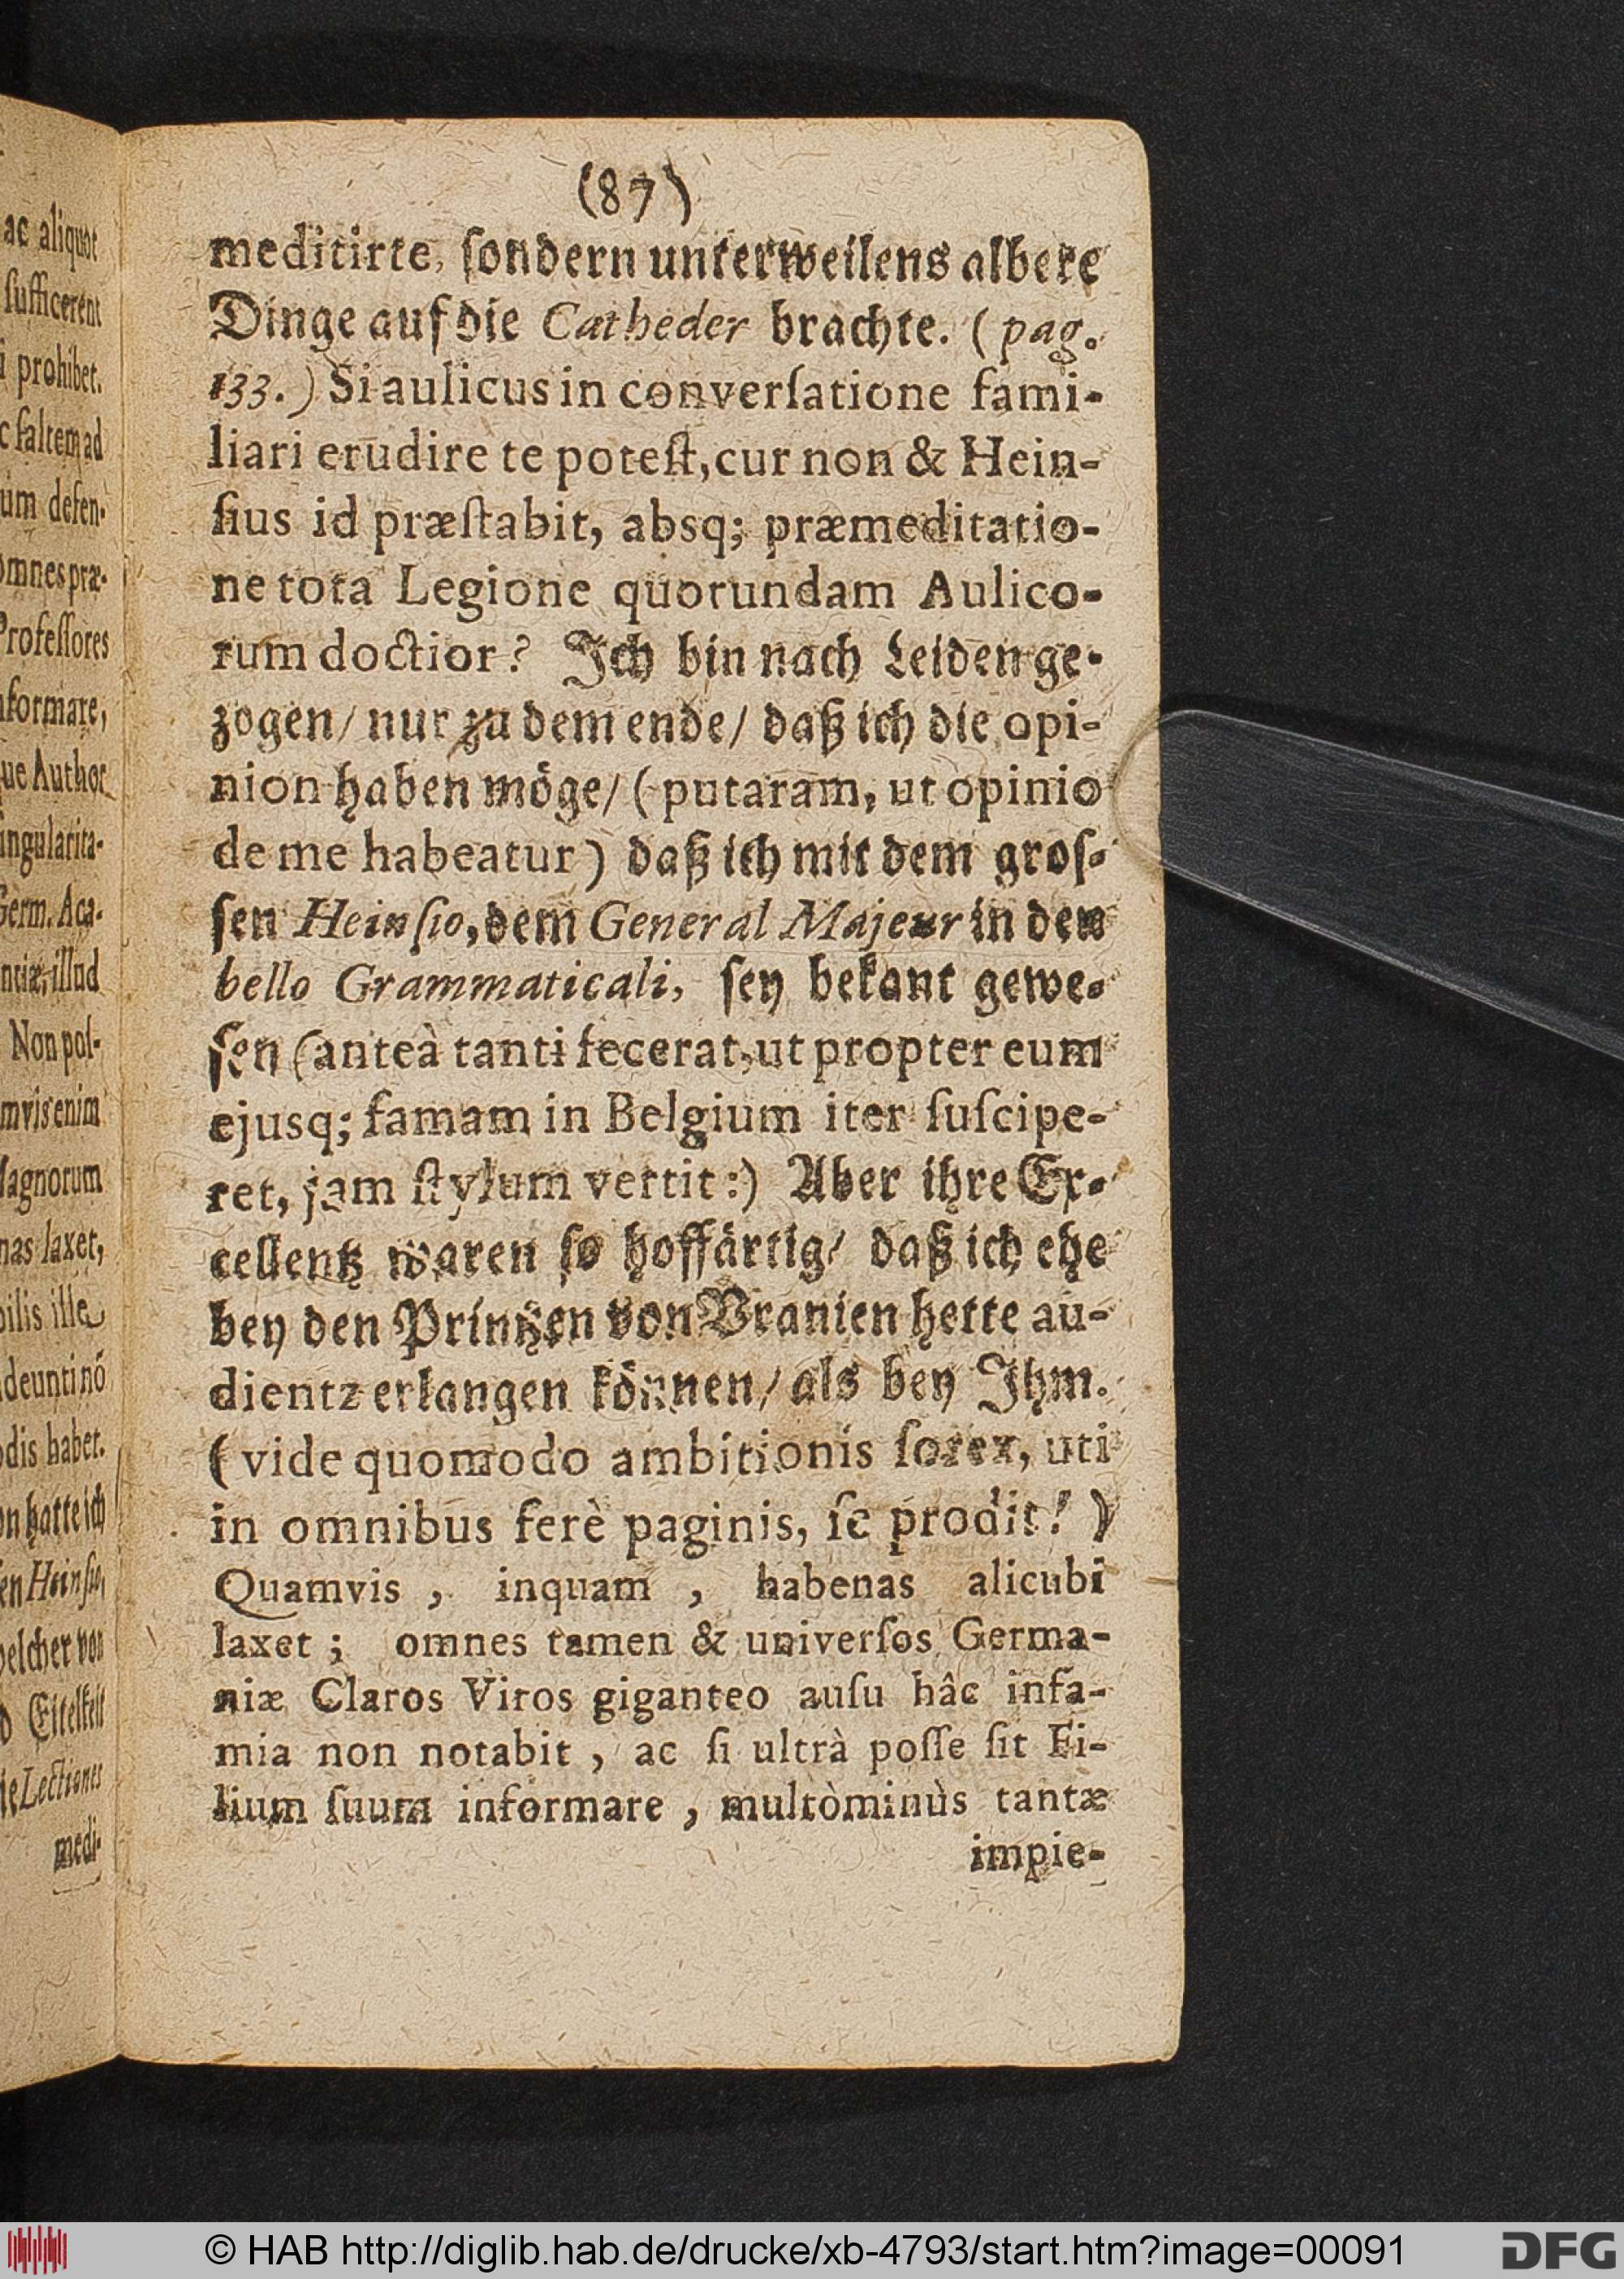 ac aliquot
sufficerent
i prohibet.
c saltem ad
um defen-
omnes præ-
Professores
nformare,
que Author
singularita-
Germ. Aca-
ntiæ, illud
Non pos-
mvis enim
Magnorum
nas laxet,
bilis ille
deunti nõ
odis habet.
on hatte ich
en Heinsio,
welcher von
d Eitelkeit
ie Lectiones
medi-
(87)
meditirte, ſondern unterweilens albere
Dinge auf die Catheder brachte. (pag.
133.) Si aulicus in converſatione fami-
liari erudire te poteſt, cur non & Hein-
ſius id præſtabit, absq; præmeditatio-
ne tota Legione quorundam Aulico-
rum doctior? Ich bin nach Leiden ge-
zogen/ nur zu dem ende/ daß ich die opi-
nion haben möge/ (putaram, ut opinio
de me habeatur) daß ich mit dem groſ-
ſen Heinſio, dem General Majeur in den
bello Grammaticali, ſey bekant gewe-
ſen (anteà tanti fecerat, ut propter eum
ejusq; famam in Belgium iter ſuſcipe-
ret, jam ſtylum vertit:) Aber ihre Ex-
cellentz waren ſo hoffärtig/ daß ich ehe
bey den Printzen von Vranien hette au-
dientz erlangen können/ als bey Ihm.
(vide quomodo ambitionis ſorex, uti
in omnibus ferè paginis, ſe prodit!)
Quamvis, inquam, habenas alicubi
laxet; omnes tamen & univerſos Germa-
niæ Claros Viros giganteo auſu hâc infa-
mia non notabit, ac ſi ultrà poſſe ſit Fi-
lium ſuum informare, multòminùs tantæ
impie-
© HAB http://diglib.hab.de/drucke/xb-4793/start.htm?image=00091
DFG